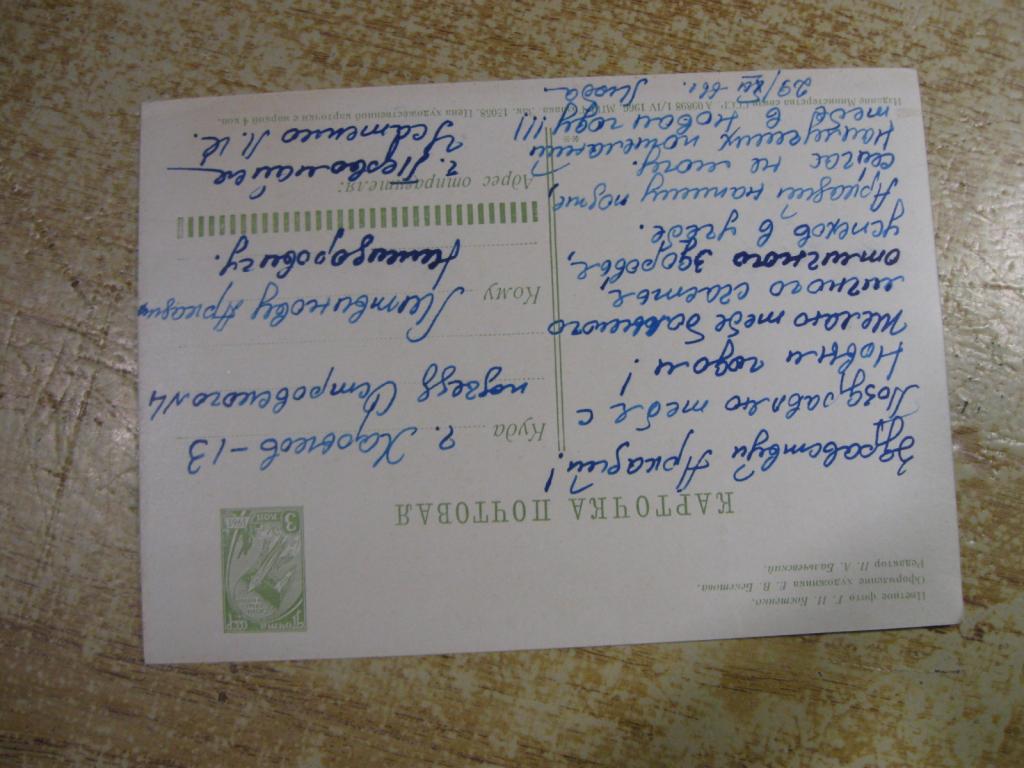 Цветное фото Г. И. Костенко.
Оформление художника Е. В. Бекетова.
Редактор П. А. Бальчевский.
ПОЧТА СССР
3 КОП
1961
КАРТОЧКА ПОЧТОВАЯ
Здравствуй Аркадий!
Поздравляю тебя с
Новым годом!
Желаю тебе большого
личного счастья,
отличного здоровья,
успехов в учебе.
Аркадий напишу позже,
сейчас не могу.
Наилучших пожеланий
тебе в Новом году!!!
29/XII-66г. Люда
Куда г. Харьков-13
подъезд Островского №4
Кому Литвинову Аркадию
Никифоровичу.
Адрес отправителя:
г. Первомайск
Издание Министерства связи СССР. А 09898 1/IV 1966. МПФ Гознака. Зак. 15088. Цена художественной карточки с маркой 4 коп.